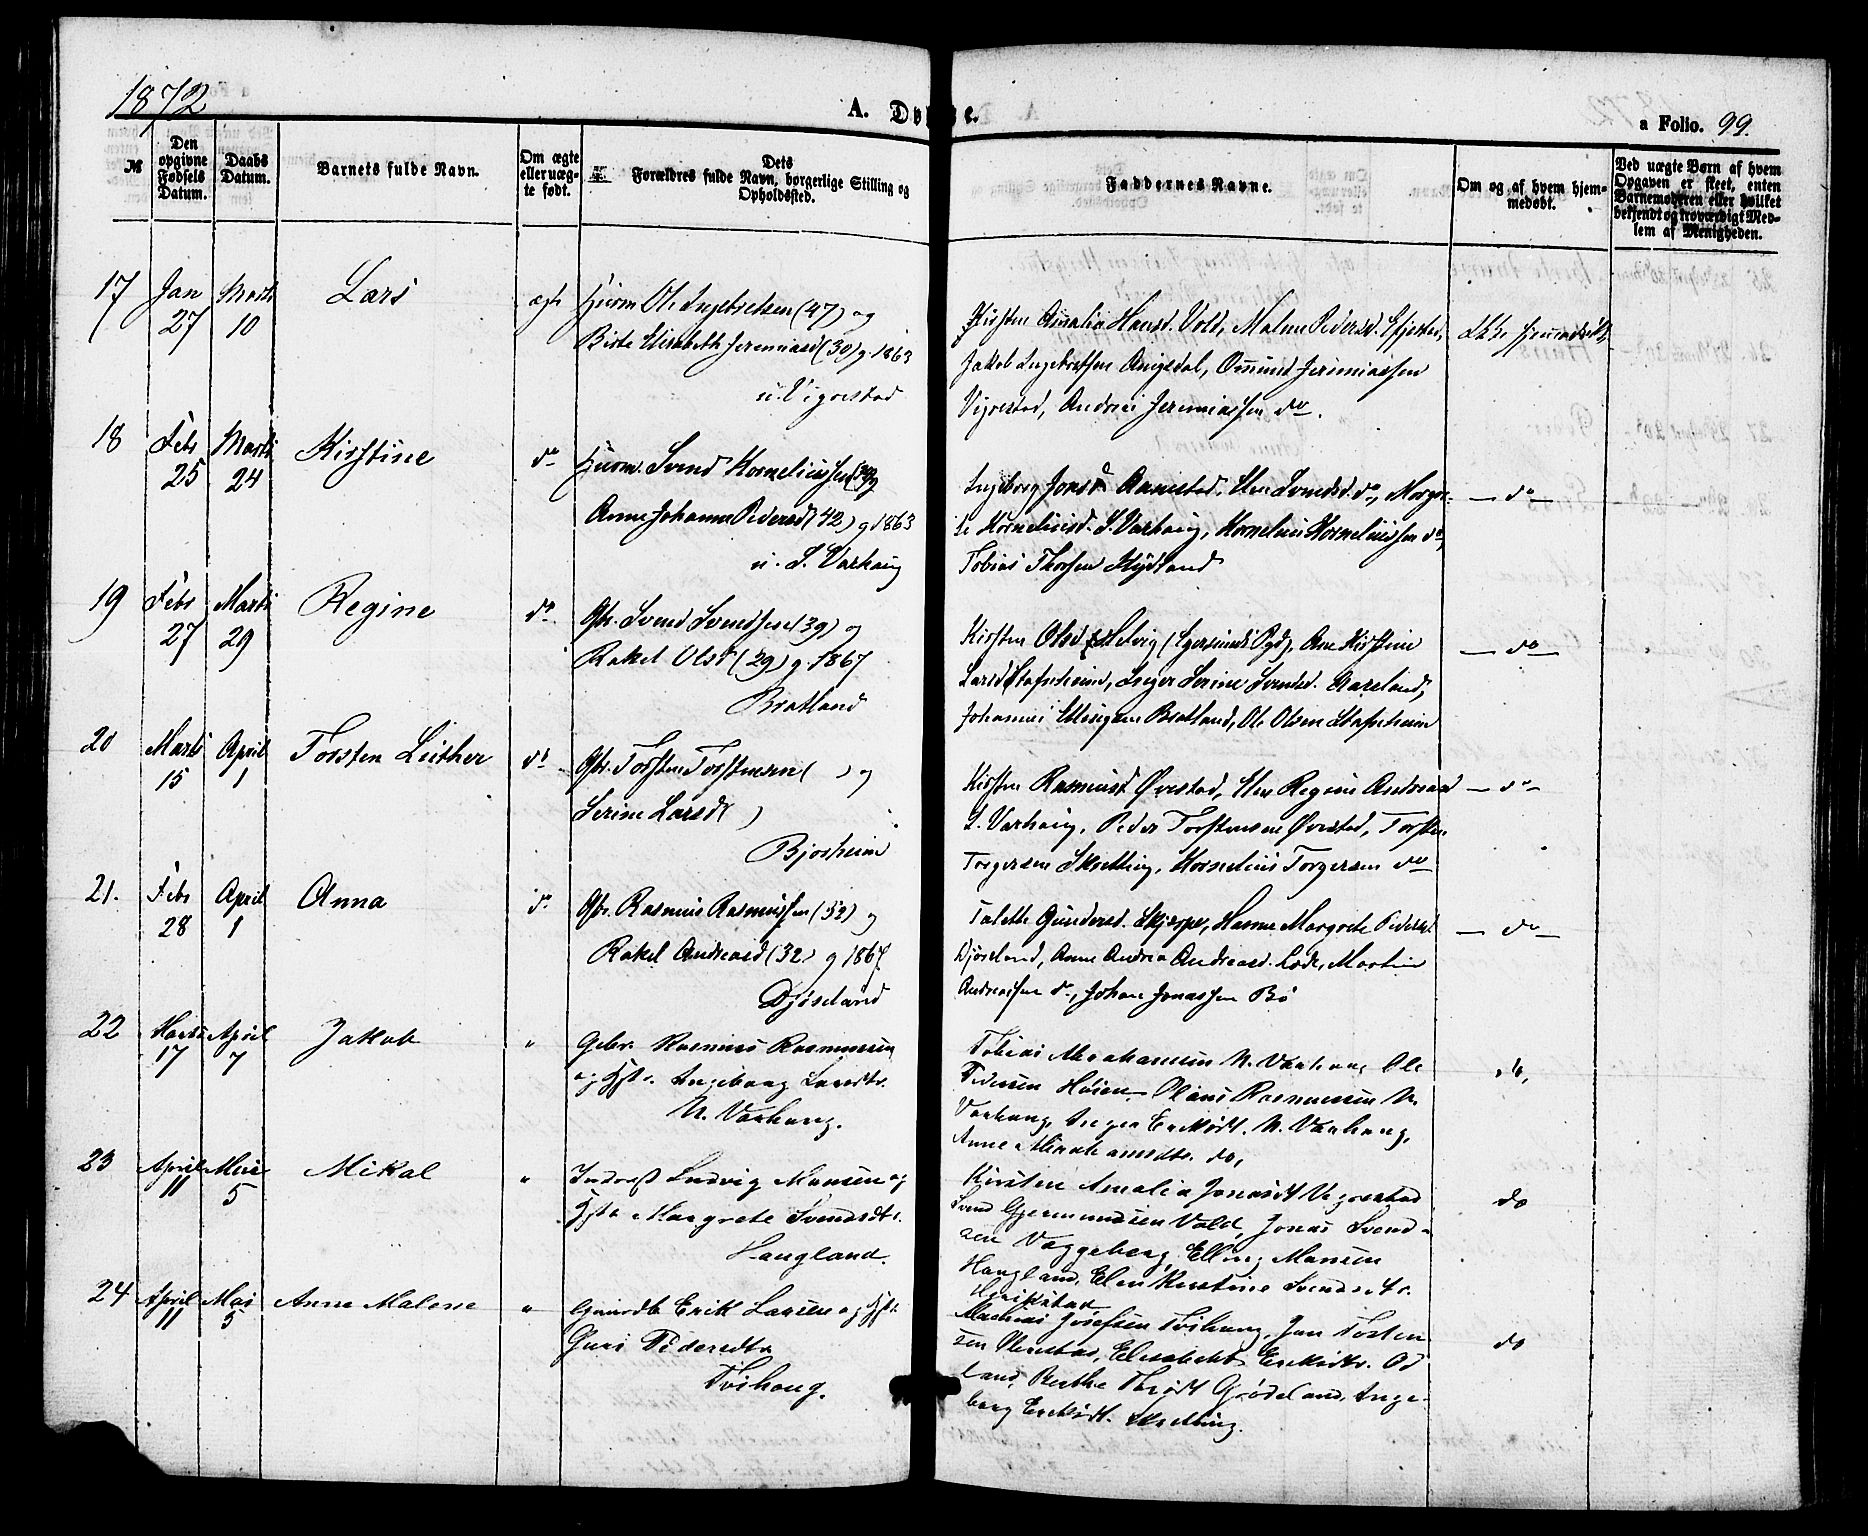 1872
A. Døbte.
a Folio. 99.
№
Den opgivne Fødsels Datum.
Daabs Datum.
Barnets fulde Navn.
Om ægte eller uæg-te født.
Dets Forældres fulde Navn, borgerlige Stilling og Opholdssted.
Faddernes Navne.
Om og af hvem hjem-medøbt.
Ved uægte Børn af hvem Opgaven er skeet, enten Barnemoderen eller hvilket bekjendt og troværdigt Med-lem af Menigheden.
17 Jan 27 Marts 10 Lars ægte
Huusm. Ole Ingebretsen (47) og
Birte Elisabeth Jeremiasd (30) g. 1863
Vigrestad
Kirsten Amalia Hansd. Vold, Malene Pedersd.
Jakob Ingebretsen Aniksdal, Omund Jeremiassen
Vigrestad, Andreas Jeremiassen do.
18 Feb 25 Marts 24 Kirstine do
Huusm. Svend Korneliussen og
Anne Johanna Pedersd (42) g 1863
S. Varhaug
Ingeborg Jonsd Aanestad, Elen Svendsd. do, Margre-
te Korneliusd. S. Varhaug, Kornelius Korneliussen do,
Tobias Thorsen
19 Febr 27 Marts 29 Regine do
Gbr. Svend Svendsen (39) og
Rakel Olsd (29) g. 1867
Bratland
Kirsten Olsd (Egersunds Pgd), Ane Kirstine
Larsd Stafnheim, Inger Serine Svendsd. Aareland,
Johannes Ellingsen Bratland, Ole Olsen Stafnheim
— do —
20 Marts 15 April 1 Torsten Luther do
Gbr. Torsten Torstensen ( ) og
Serine Larsd ( )
Bjorheim
Kirsten Rasmusd Øvestad, Elen Regine Andreasd
S. Varhaug, Peder Torstensen Øvestad, Torsten
Torgersen Skretting, Kornelius Torgersen do
— do —
21. Febr 28 April 1 Anna do
Gbr. Rasmus Rasmussen (52) og
Rakel Andreasd (32) g 1867
Djøseland
Talette Gundersd. Skjerpe, Hanne Margrete Pedersd
Djøseland, Anne Andrea Andreasd. Lode, Martin
Andreassen do, Johan Jonassen Bø
— do —
22 Marts 17 April 7 Jakob "
Gbr. Rasmus Rasmussen
og Hstr. Ingeborg Larsdtr.
N. Varhaug.
Tobias Abrahamsen N. Varhaug, Ole
Pedersen Høien, Olaus Rasmussen N.
Varhaug, Inger Eriksdt. N. Varhaug,
Anne Abrahamsdtr. do,
do,
23 April 11 Mai 5 Mikal "
Ludvig Monsen og
Hstr Margrete Svendsdtr.
Haugland.
Kirsten Amalia Jonasdt Vigrestad
Svend Gjermundsen Vold, Jonas Svend-
sen Vaggeberg, Elling Monsen
Haugland, Elen Kirstine Svendsdtr.
do
24 April 11 Mai 5 Anne Malene "
Erik Larsen og Hstr.
Guri Pedersdtr
Tvihaug.
Mathias Josefsen Tvihaug, Jon Tosten
sen, Elisabeth Eriksdtr. Od
land, Berthe Grødeland, Inge-
borg Eriksdt. Skretting.
do